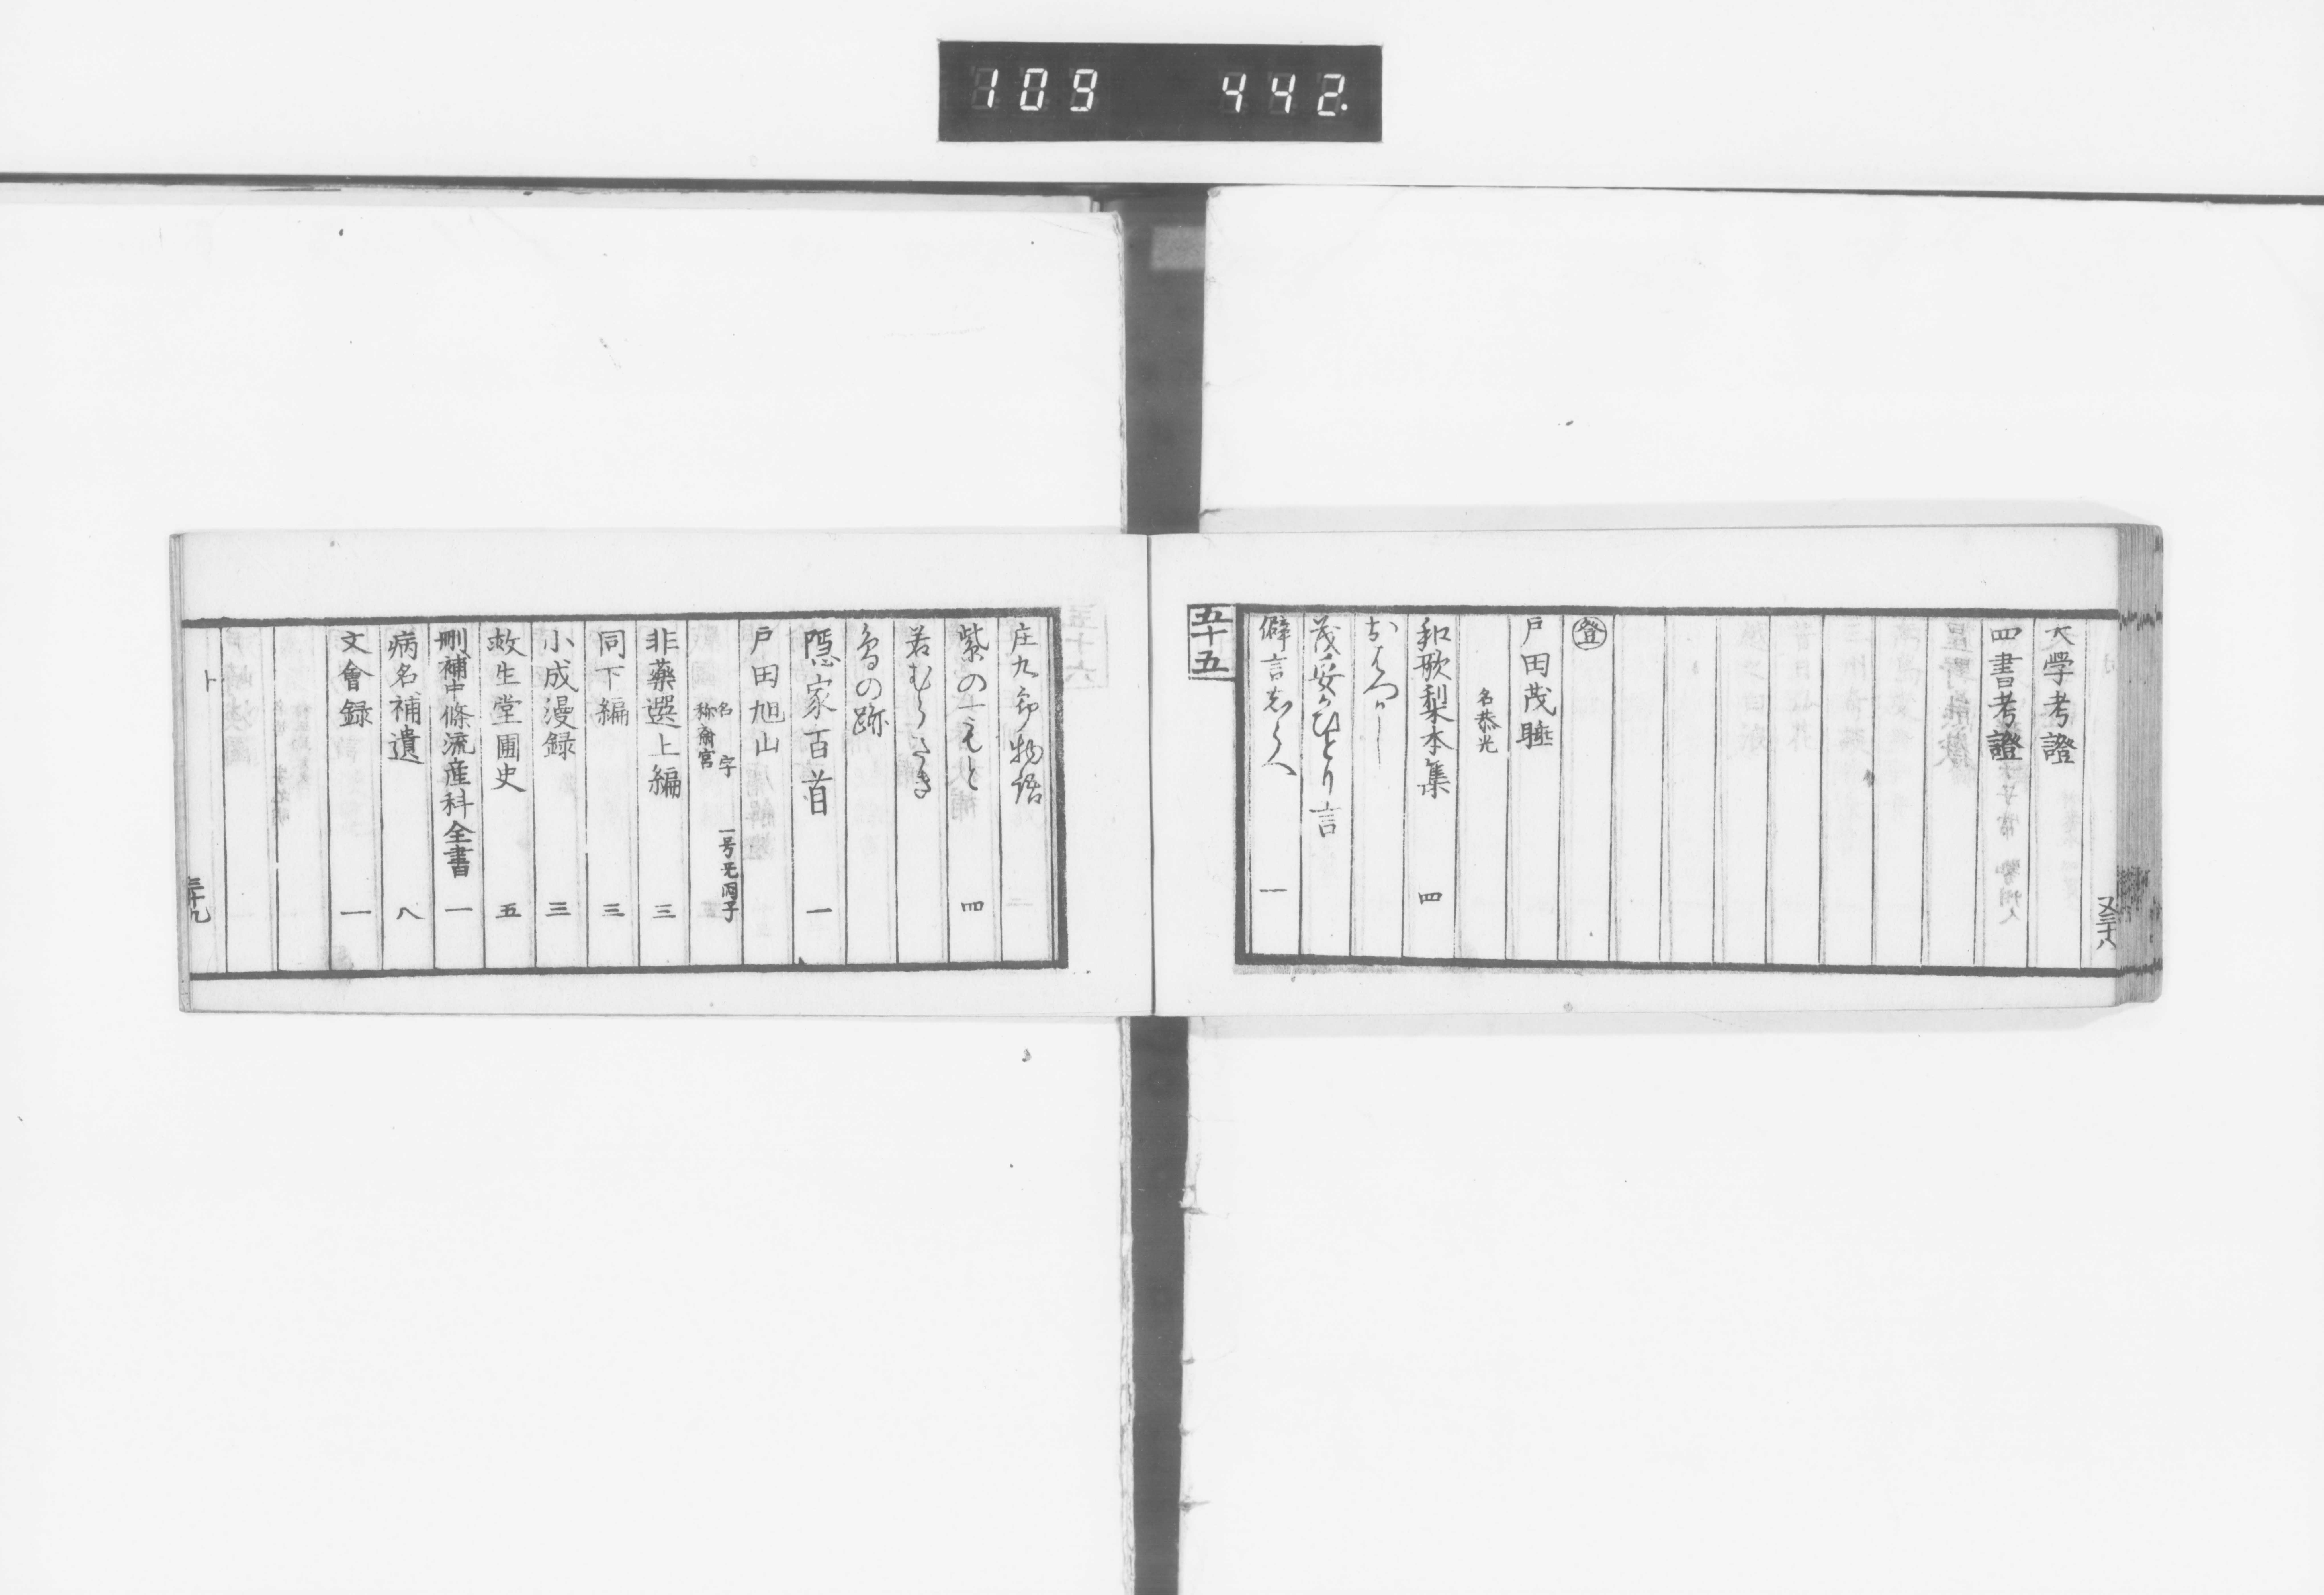 109 442
又三十八
大學考證
四書考證
登
戸田茂睡
名恭光
和歌梨本集 四
茂妥がひとり言
僻言しらへ 一
五十五
庄九郎物語
紫の一もと 四
若むらさき
鳥の跡
隠家百首 一
戸田旭山
名 字 一号无悶子
称斎宮
非藥選上編 三
同下編 三
小成漫録 三
救生堂圃史 五
刪補中條流産科全書 一
病名補遺 八
文會録 一
ト
三十九